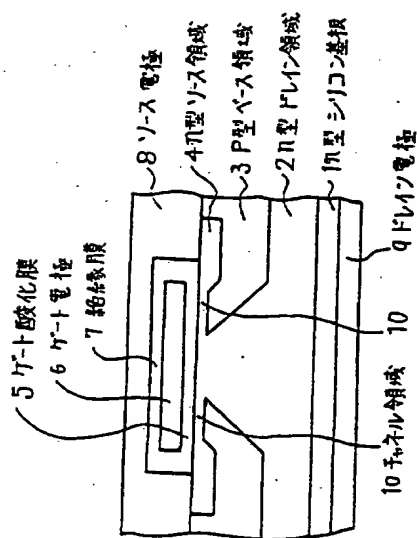 5 ゲート酸化膜
6 ゲート電極
7 絶縁膜
8 ソース電極
4 n型ソース領域
3 P型ベース領域
2 n型ドレイン領域
1 n型シリコン基板
9 ドレイン電極
10
10 チャネル領域